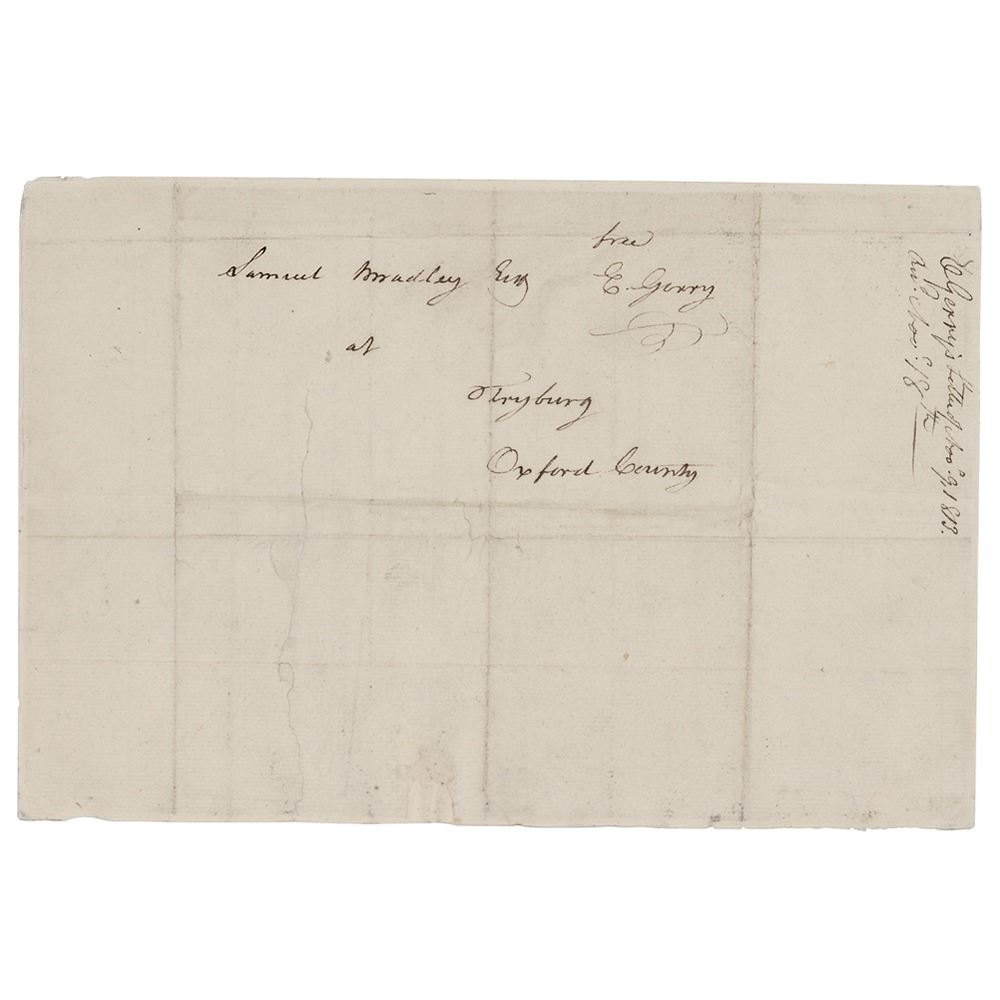 free
Samuel Bradley Esqr E. Gerry
at
Fryburg
Oxford County
E Gerry's letter Nov. 9, 1813.
Ansd Nov. 18th